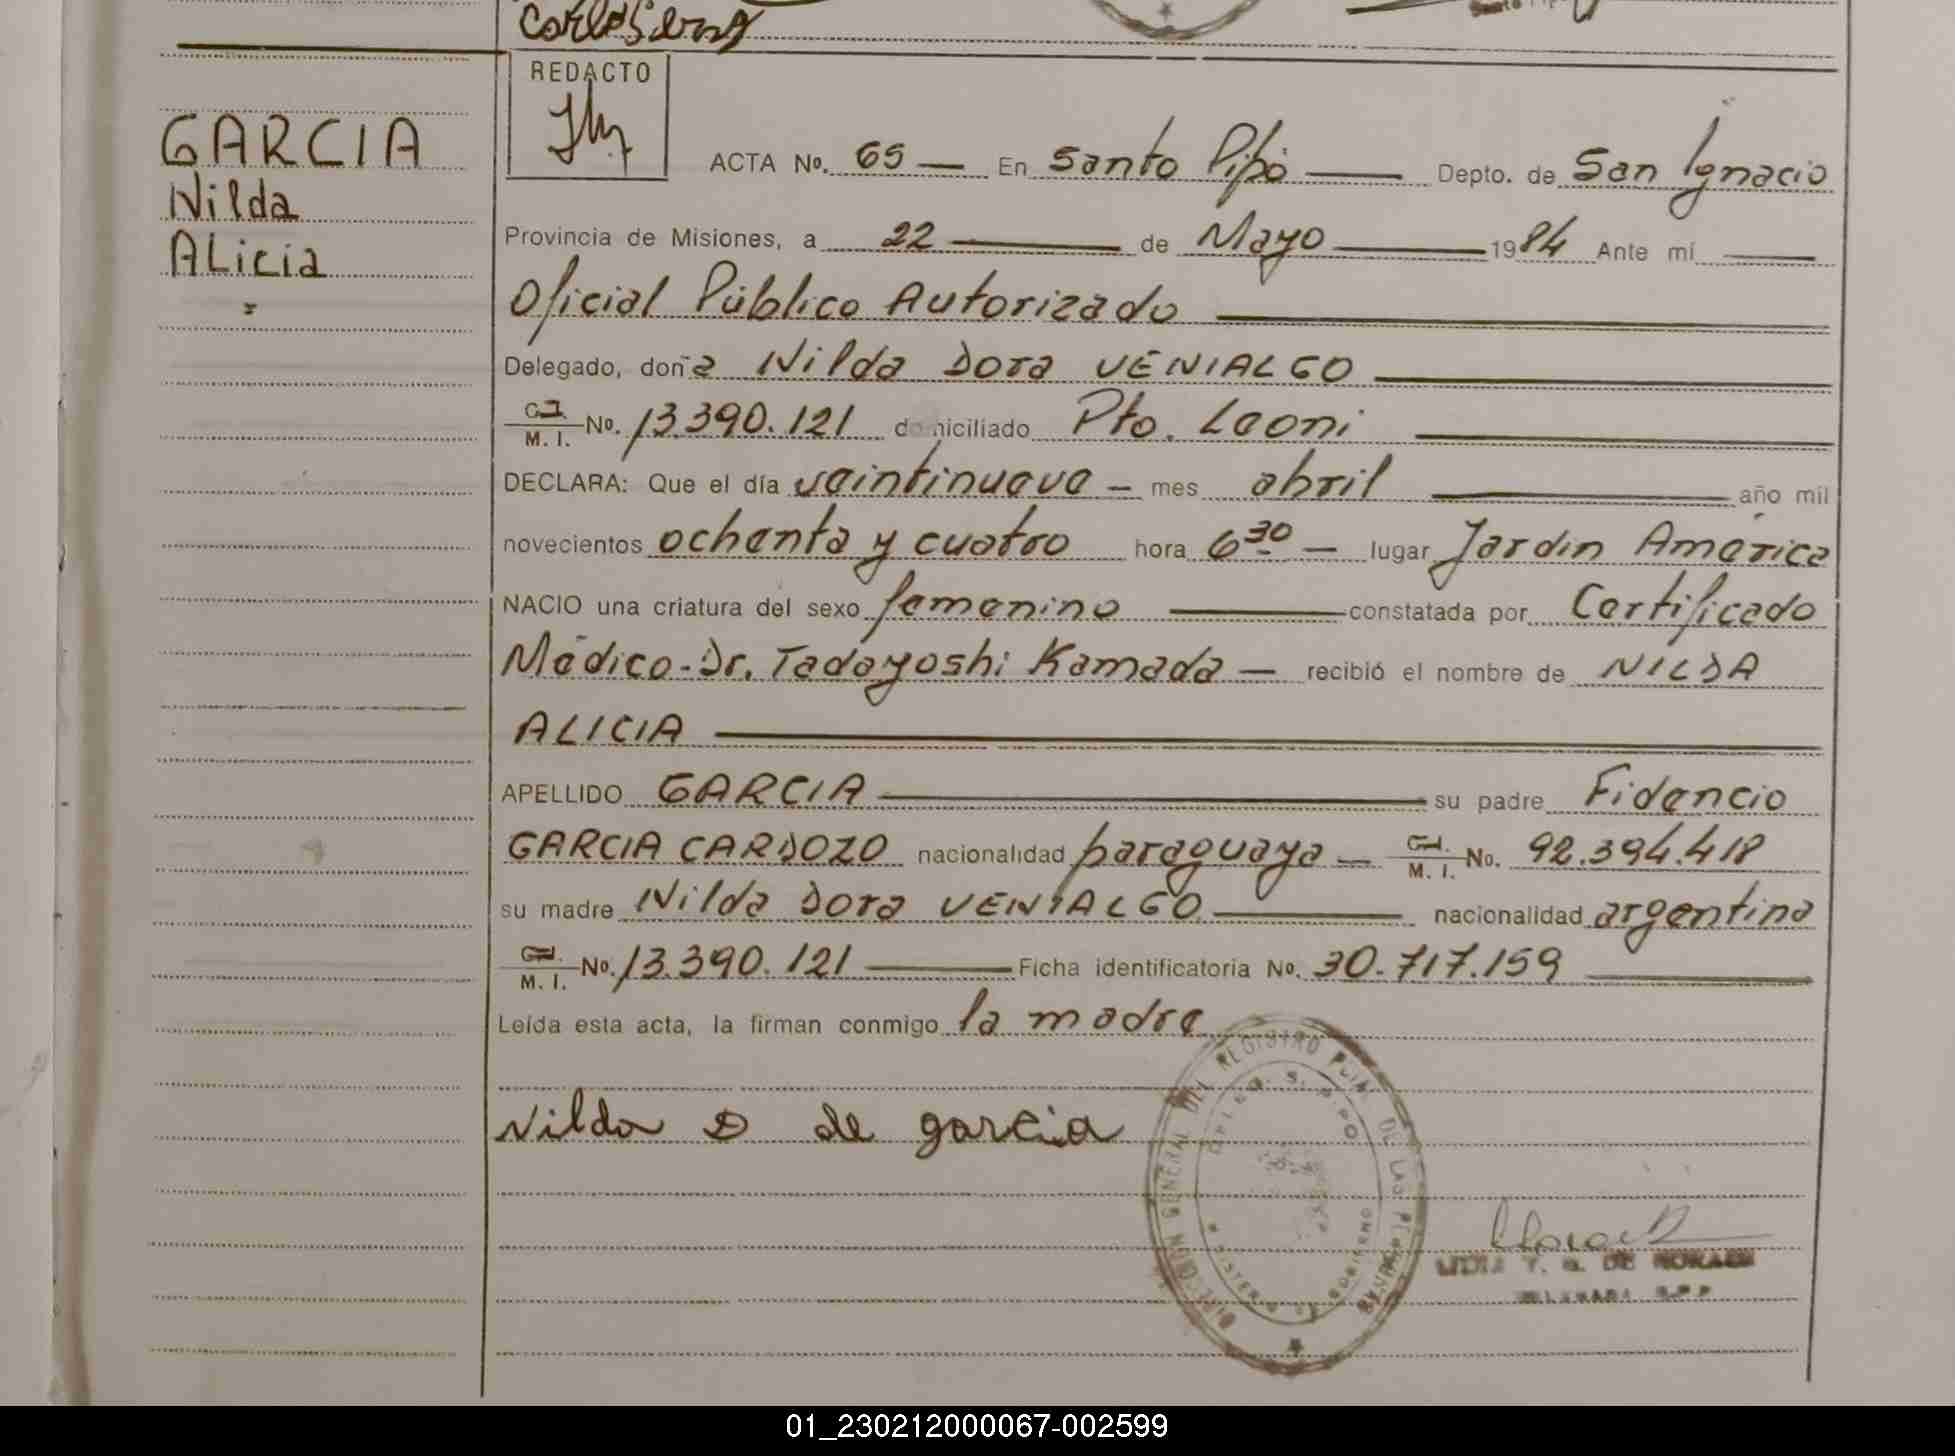 REDACTO
GARCIA
Nilda
ALicia
ACTA No. 65 — En Santo Pipó — Depto. de San Ignacio
Provincia de Misiones, a 22 — de Mayo — 1984 Ante mí —
Oficial Público Autorizado —
Delegado, doña Nilda Dora VENIALGO —
C.I. M. I. No. 13.390.121 domiciliado Pto. Leoni —
DECLARA: Que el día veintinueve — mes abril — año mil
novecientos ochenta y cuatro hora 6 30 — lugar Jardin América
NACIO una criatura del sexo femenino — constatada por Certificado
Médico - Dr. Tadayoshi Kamada — recibió el nombre de NILDA
ALICIA —
APELLIDO GARCIA — su padre Fidencio
GARCIA CARDOZO nacionalidad paraguaya — C.I. M. I. No. 92.394.418
su madre Nilda Dora VENIALGO — nacionalidad argentina
C.I. M. I. No. 13.390.121 — Ficha identificatoria No. 30.717.159 —
Leída esta acta, la firman conmigo la madre
Nilda D de garcia
DIRECCION GENERAL DEL REGISTRO PCIAL. DE LAS PERSONAS
MINISTERIO DE GOBIERNO
01_230212000067-002599